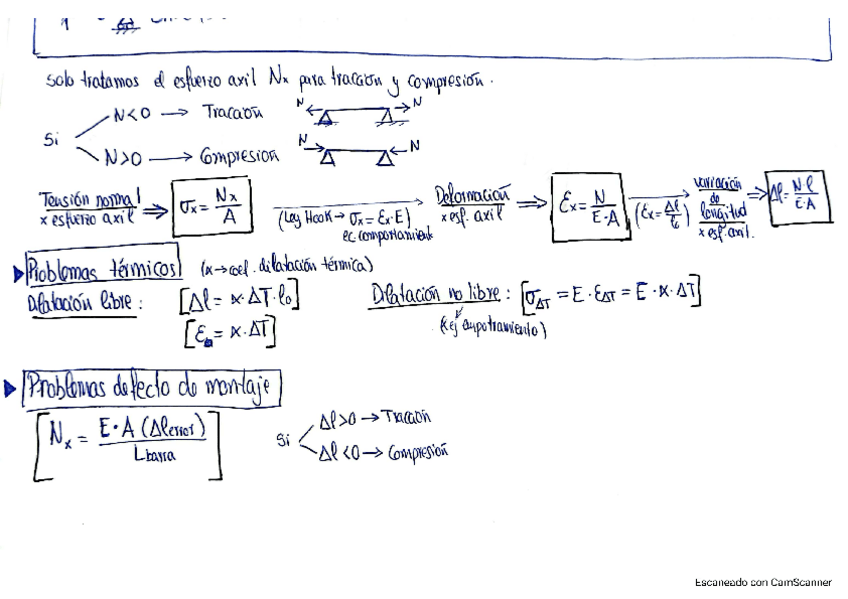 Solo tratamos el esfuerzo axil Nx para tracción y compresión.
Si
N<0 → Tracción
N N
N>0 → Compresión
N N
Tensión normal x esfuerzo axil ⇒ σx = Nx / A
(Ley Hook → σx = εx·E) ec. comportamiento
Deformación x esf. axil ⇒ εx = N / E·A
(εx = Δl / l0)
variación de longitud x esf. axil. ⇒ Δl = N·l / E·A
Problemas térmicos (α → coef. dilatación térmica)
Dilatación libre: [Δl = α·ΔT·l0]
[ε = α·ΔT]
Dilatación no libre: [σΔT = E·εΔT = E·α·ΔT]
(ej empotramiento)
Problemas defecto de montaje
[Nx = E·A (Δlerror) / Lbarra]
Si
Δl>0 → Tracción
Δl<0 → Compresión
Escaneado con CamScanner